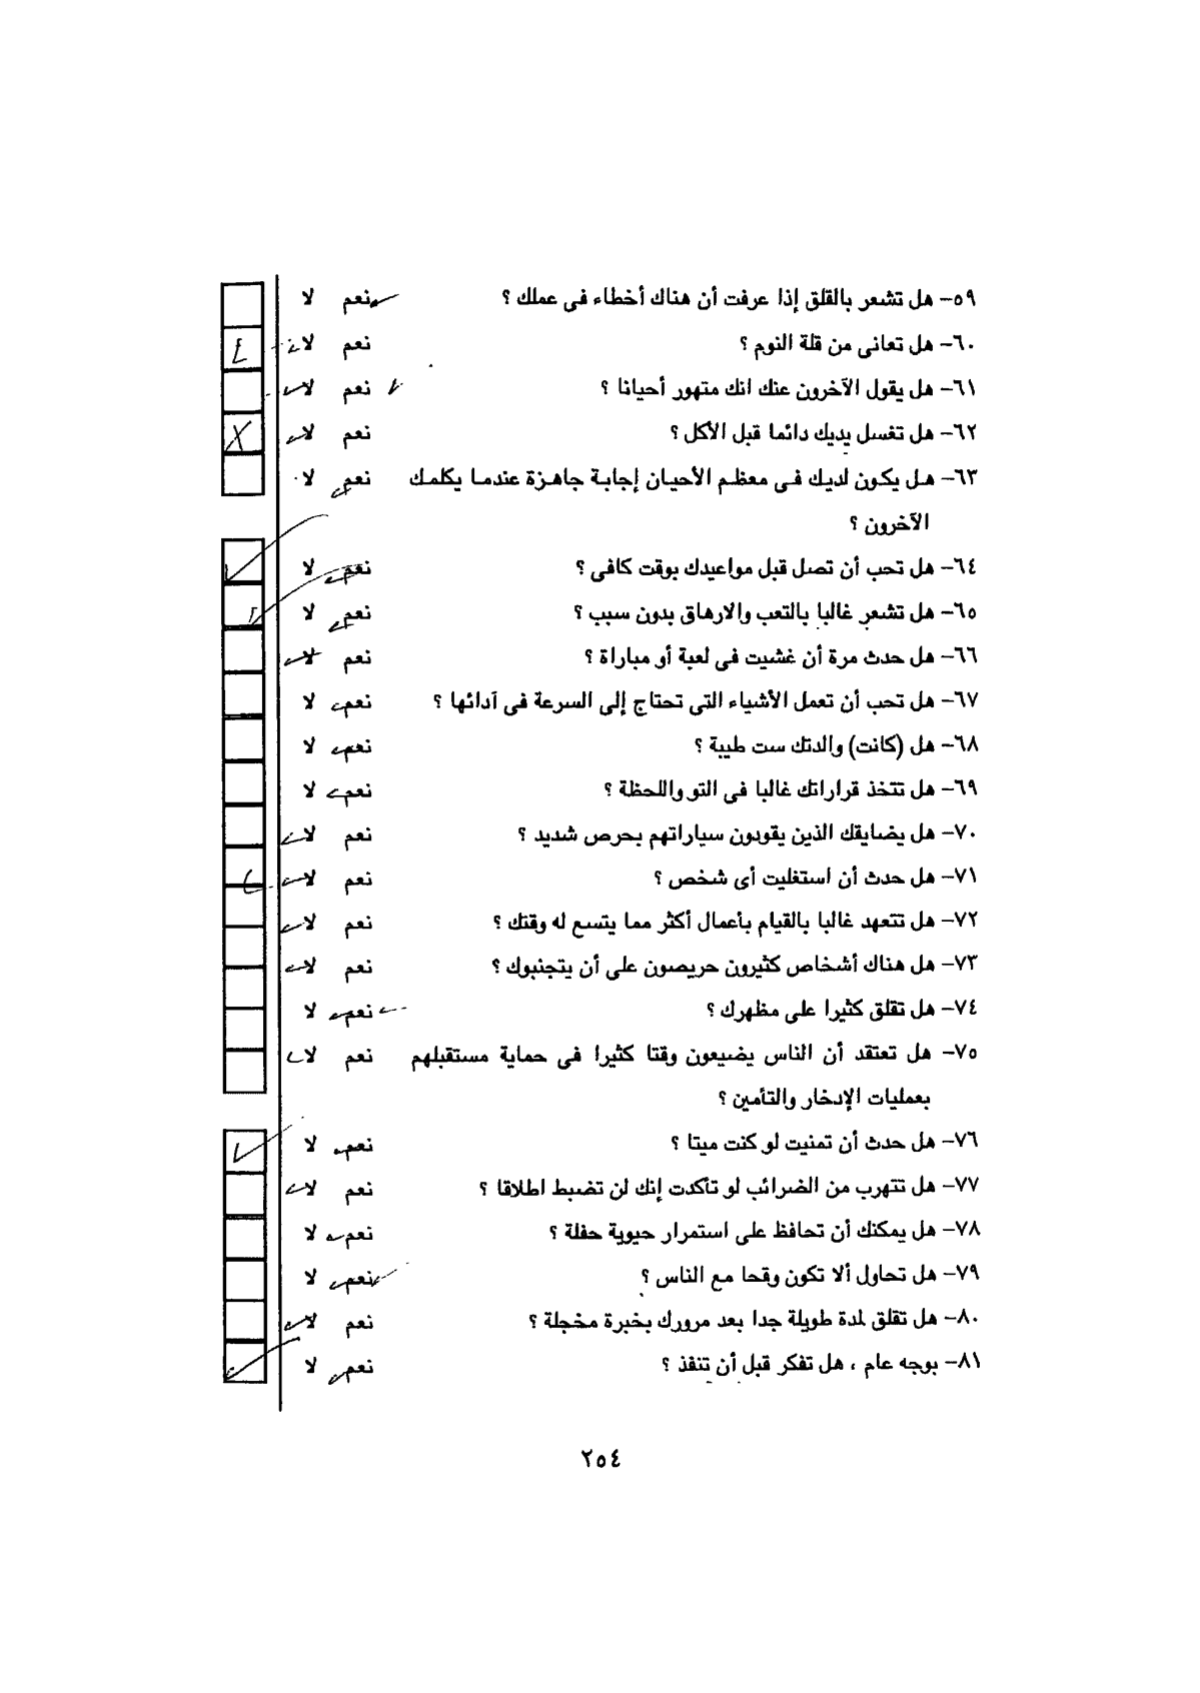 ٥٩- هل تشعر بالقلق إذا عرفت أن هناك أخطاء فى عملك ؟ نعم لا
٦٠- هل تعانى من قلة النوم ؟ نعم لا
٦١- هل يقول الآخرون عنك انك متهور أحيانا ؟ نعم لا
٦٢- هل تغسل يديك دائما قبل الأكل ؟ نعم لا
٦٣- هل يكون لديك فى معظم الأحيان إجابة جاهزة عندما يكلمك نعم لا
الآخرون ؟
٦٤- هل تحب أن تصل قبل مواعيدك بوقت كافى ؟ نعم لا
٦٥- هل تشعر غالبا بالتعب والارهاق بدون سبب ؟ نعم لا
٦٦- هل حدث مرة أن غشيت فى لعبة أو مباراة ؟ نعم لا
٦٧- هل تحب أن تعمل الأشياء التى تحتاج إلى السرعة فى آدائها ؟ نعم لا
٦٨- هل (كانت) والدتك ست طيبة ؟ نعم لا
٦٩- هل تتخذ قراراتك غالبا فى التو واللحظة ؟ نعم لا
٧٠- هل يضايقك الذين يقودون سياراتهم بحرص شديد ؟ نعم لا
٧١- هل حدث أن استغليت أى شخص ؟ نعم لا
٧٢- هل تتعهد غالبا بالقيام بأعمال أكثر مما يتسع له وقتك ؟ نعم لا
٧٣- هل هناك أشخاص كثيرون حريصون على أن يتجنبوك ؟ نعم لا
٧٤- هل تقلق كثيرا على مظهرك ؟ نعم لا
٧٥- هل تعتقد أن الناس يضيعون وقتا كثيرا فى حماية مستقبلهم نعم لا
بعمليات الإدخار والتأمين ؟
٧٦- هل حدث أن تمنيت لو كنت ميتا ؟ نعم لا
٧٧- هل تتهرب من الضرائب لو تأكدت إنك لن تضبط اطلاقا ؟ نعم لا
٧٨- هل يمكنك أن تحافظ على استمرار حيوية حفلة ؟ نعم لا
٧٩- هل تحاول ألا تكون وقحا مع الناس ؟ نعم لا
٨٠- هل تقلق لمدة طويلة جدا بعد مرورك بخبرة مخجلة ؟ نعم لا
٨١- بوجه عام ، هل تفكر قبل أن تنفذ ؟ نعم لا
٢٥٤